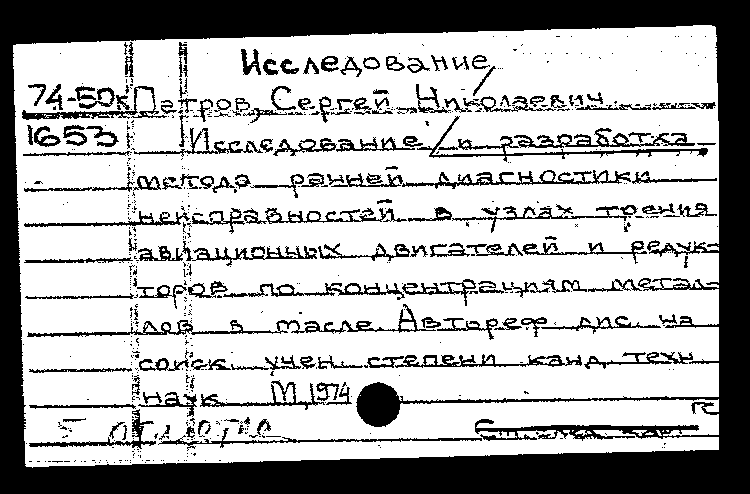 Исследование
74-50к Патров, Сергей Николаевич
1653 Исследование и разработка
метода ранней диагностики
неисправностей в узлах трения
авиационных двигателей и редук-
торов по концентрациям метал-
лов в масле. Автореф. дис. на
соиск. учен. степени канд. техн.
наук М, 1974